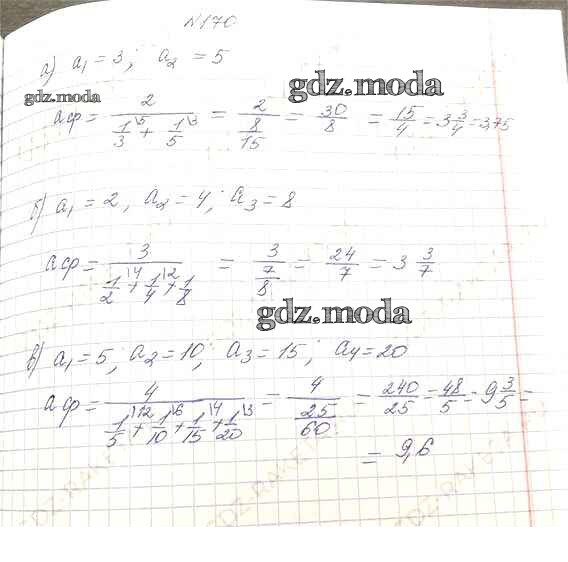 №170
а) a₁ = 3; a₂ = 5
gdz.moda
gdz.moda
aф = 2/(1/3\5 + 1/5\3) = 2/(8/15) = 30/8 = 15/4 = 3 3/4 = 3,75
б) a₁ = 2, a₂ = 4; a₃ = 8
aф = 3/(1/2\4 + 1/4\2 + 1/8) = 3/(7/8) = 24/7 = 3 3/7
gdz.moda
в) a₁ = 5; a₂ = 10; a₃ = 15; a₄ = 20
aф = 4/(1/5\12 + 1/10\6 + 1/15\4 + 1/20\3) = 4/(25/60) = 240/25 = 48/5 = 9 3/5 =
= 9,6